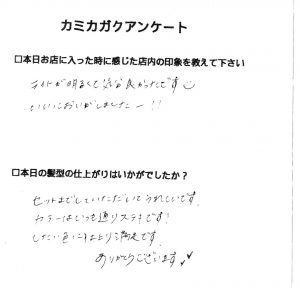 カミカガクアンケート
□本日お店に入った時に感じた店内の印象を教えて下さい
ライトが明るくて気分良かったです
いいにおいがしましたー!!
□本日の髪型の仕上がりはいかがでしたか?
セットまでしていただいてうれしいです。
カラーはいつも通りステキです!
したい色に 満足です。
ありがとうございます